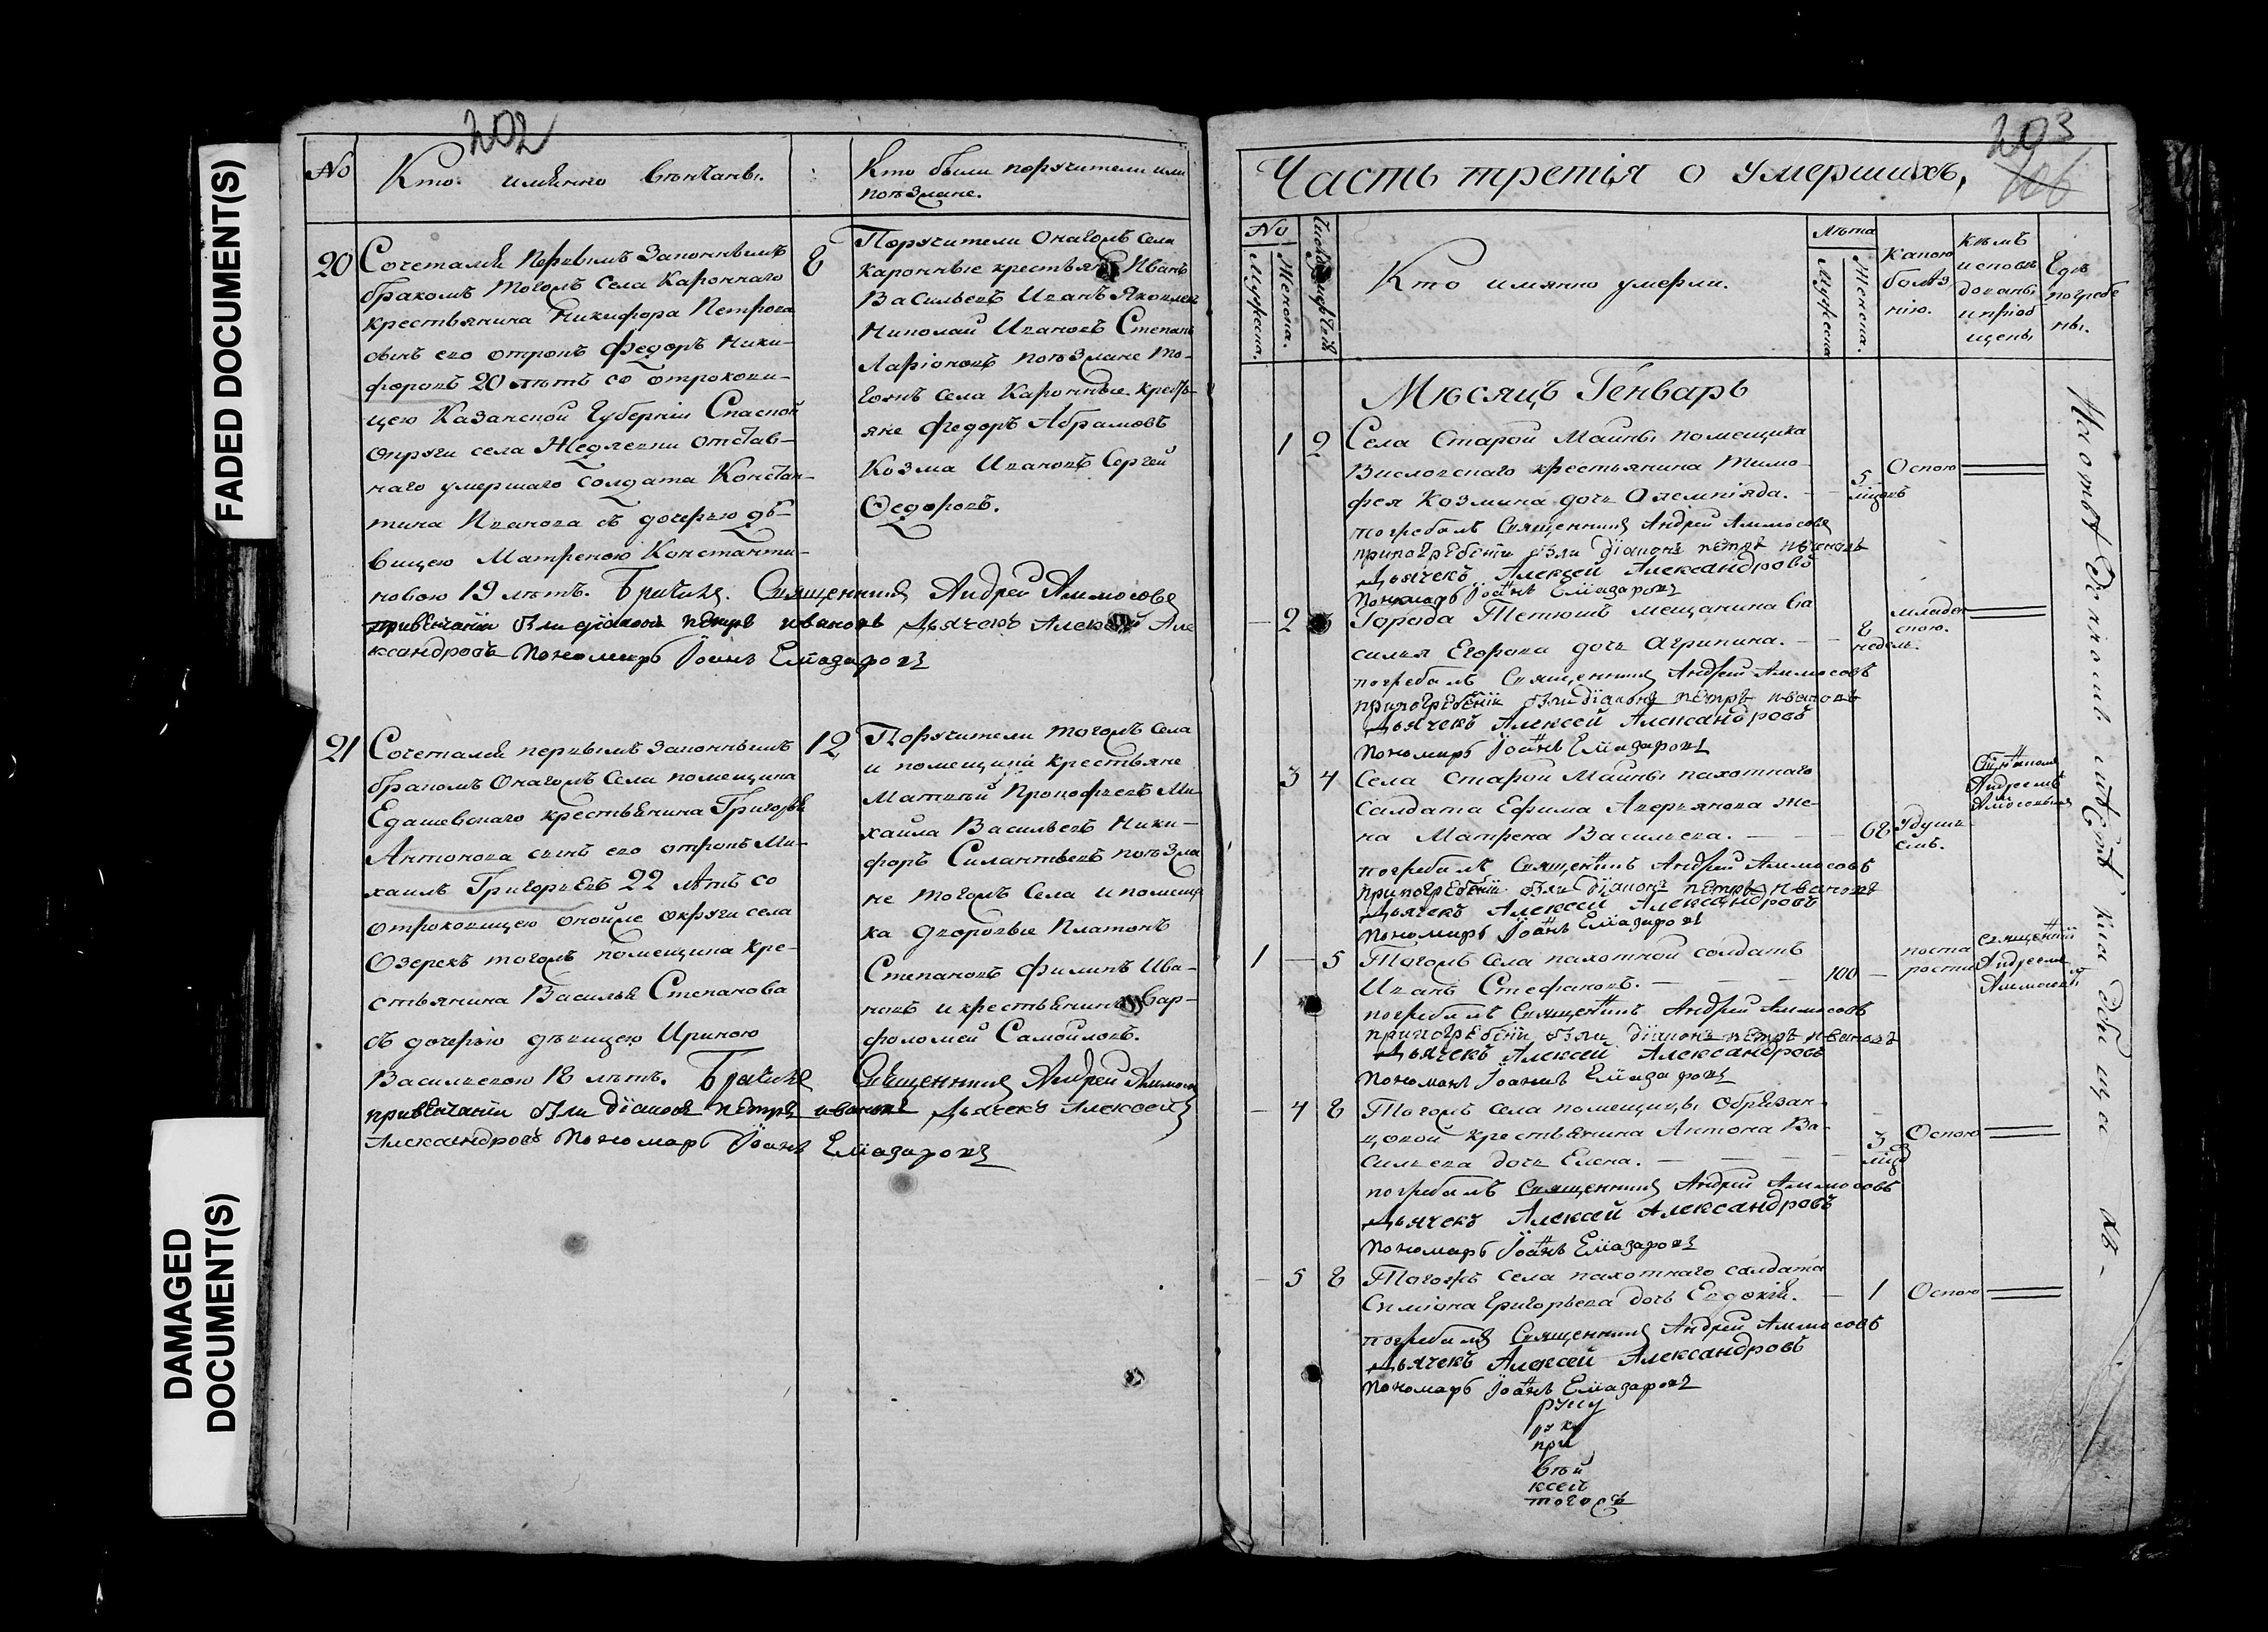 FADED DOCUMENT(S)
DAMAGED
DOCUMENT(S)
202
№
Кто имянно вѣнчаны.
Кто были поручители или
поѣзжане.
20
Сочетался первымъ законнымъ
бракомъ тогожъ села Каронного
крестьянина Никифора Петрова
сынъ его отрокъ Федоръ Ники-
форовъ 20 лѣтъ со отрокови-
цею Казанской Губерніи Спаской
округи села Жедяевки отстав-
наго умершаго солдата Констан-
тина Иванова съ дочерью дѣ-
вицею Матреною Константи-
новою 19 лѣтъ. Священникъ Андрей Аммосовъ
привенчании были діаконъ петръ ивановъ дьячекъ Алексей Але
ксандровъ пономарь Іоаннъ Елиазаровъ
8
Поручители онагожъ села
каронные крестьяне Иванъ
Васильевъ Иванъ Яковлевъ
Николай Ивановъ Степанъ
Ларіоновъ поѣзжане то-
гожъ села Каронные кресть-
яне Федоръ Абрамовъ
Козма Ивановъ Сергей
Ѳедоровъ.
21
Сочетался первымъ законнымъ
бракомъ онагожъ села помещика
Едашевскаго крестьянина Григорья
Антонова сынъ его отрокъ Ми-
хаилъ Григорьевъ 22 лѣтъ со
отроковицею оной же округи села
Озерекъ тогожъ помещика кре-
стьянина Василья Степанова
съ дочерью дѣвицею Ириною
Васильевою 18 лѣтъ. Священникъ Андрей Аммосовъ
привенчании были діаконъ петръ ивановъ дьячекъ Алексей
Александровъ пономарь Іоаннъ Елиазаровъ
12
Поручители тогожъ села
и помещика крестьяне
Матвей Прокофьевъ Ми-
хаила Васильевъ Ники-
форъ Силантьевъ поѣзжа
не тогожъ села и помещи
ка дворовые Платонъ
Степановъ Филипъ Ива-
новъ и крестьянинъ Вар-
фоломей Самойловъ.
203
Часть третія о умершихъ.
№
Мужеска.
Женска.
Кто имянно умерли.
Лѣта
Мужеска
Женска.
Какою
болѣз
нію.
Кѣмъ
исповѣ
дованы
и пріоб
щены
Гдѣ
погребе
ны.
Мѣсяцъ Генварь
1 2
Села Старой Майны помещика
Вислов­скаго крестьянина Тимо-
фея Козмина дочь Олемпіяда.
5
мцовъ
Оспою
погребалъ Священникъ Андрей Аммосовъ
припогребеніи были діаконъ петръ ивановъ
Дьячекъ Алексей Александровъ
Пономарь Іоаннъ Елиазаровъ
2
Города Тетюшъ мещанина Ва
силья Егорова дочь Агрипина.
8
недель.
младен
скою.
погребалъ Священникъ Андрей Аммосовъ
припогребеніи были діаконъ петръ ивановъ
Дьячекъ Алексей Александровъ
Пономарь Іоаннъ Елиазаровъ
3 4
Села Старой Майны пахотнаго
Салдата Ефима Аверьянова же-
на Матрена Васильева.
68
Удушь
емъ.
Андреемъ
погребалъ Священникъ Андрей Аммосовъ
припогребеніи были діаконъ петръ ивановъ
Дьячекъ Алексей Александровъ
Пономарь Іоаннъ Елиазаровъ
1 5
Тогожъ села пахотной солдатъ
Иванъ Стефановъ.
100
поста
рости
Священни
Андреемъ
погребалъ Священникъ Андрей Аммосовъ
припогребеніи были діаконъ петръ ивановъ
Дьячекъ Алексей Александровъ
Пономарь Іоаннъ Елиазаровъ
4 8
Тогожъ села помещицы Обрезан-
цовой крестьянина Антона Ва-
сильева дочь Елена.
3
мцд
Оспою
погребалъ Священникъ Андрей Аммосовъ
Дьячекъ Алексей Александровъ
Пономарь Іоаннъ Елиазаровъ
5 8
Тогожъ села пахотнаго салдата
Симіона Григорьева дочь Евдокія.
1
Оспою
погребалъ Священникъ Андрей Аммосовъ
Дьячекъ Алексей Александровъ
Пономарь Іоаннъ Елиазаровъ
руку
при
ксей
тогожъ